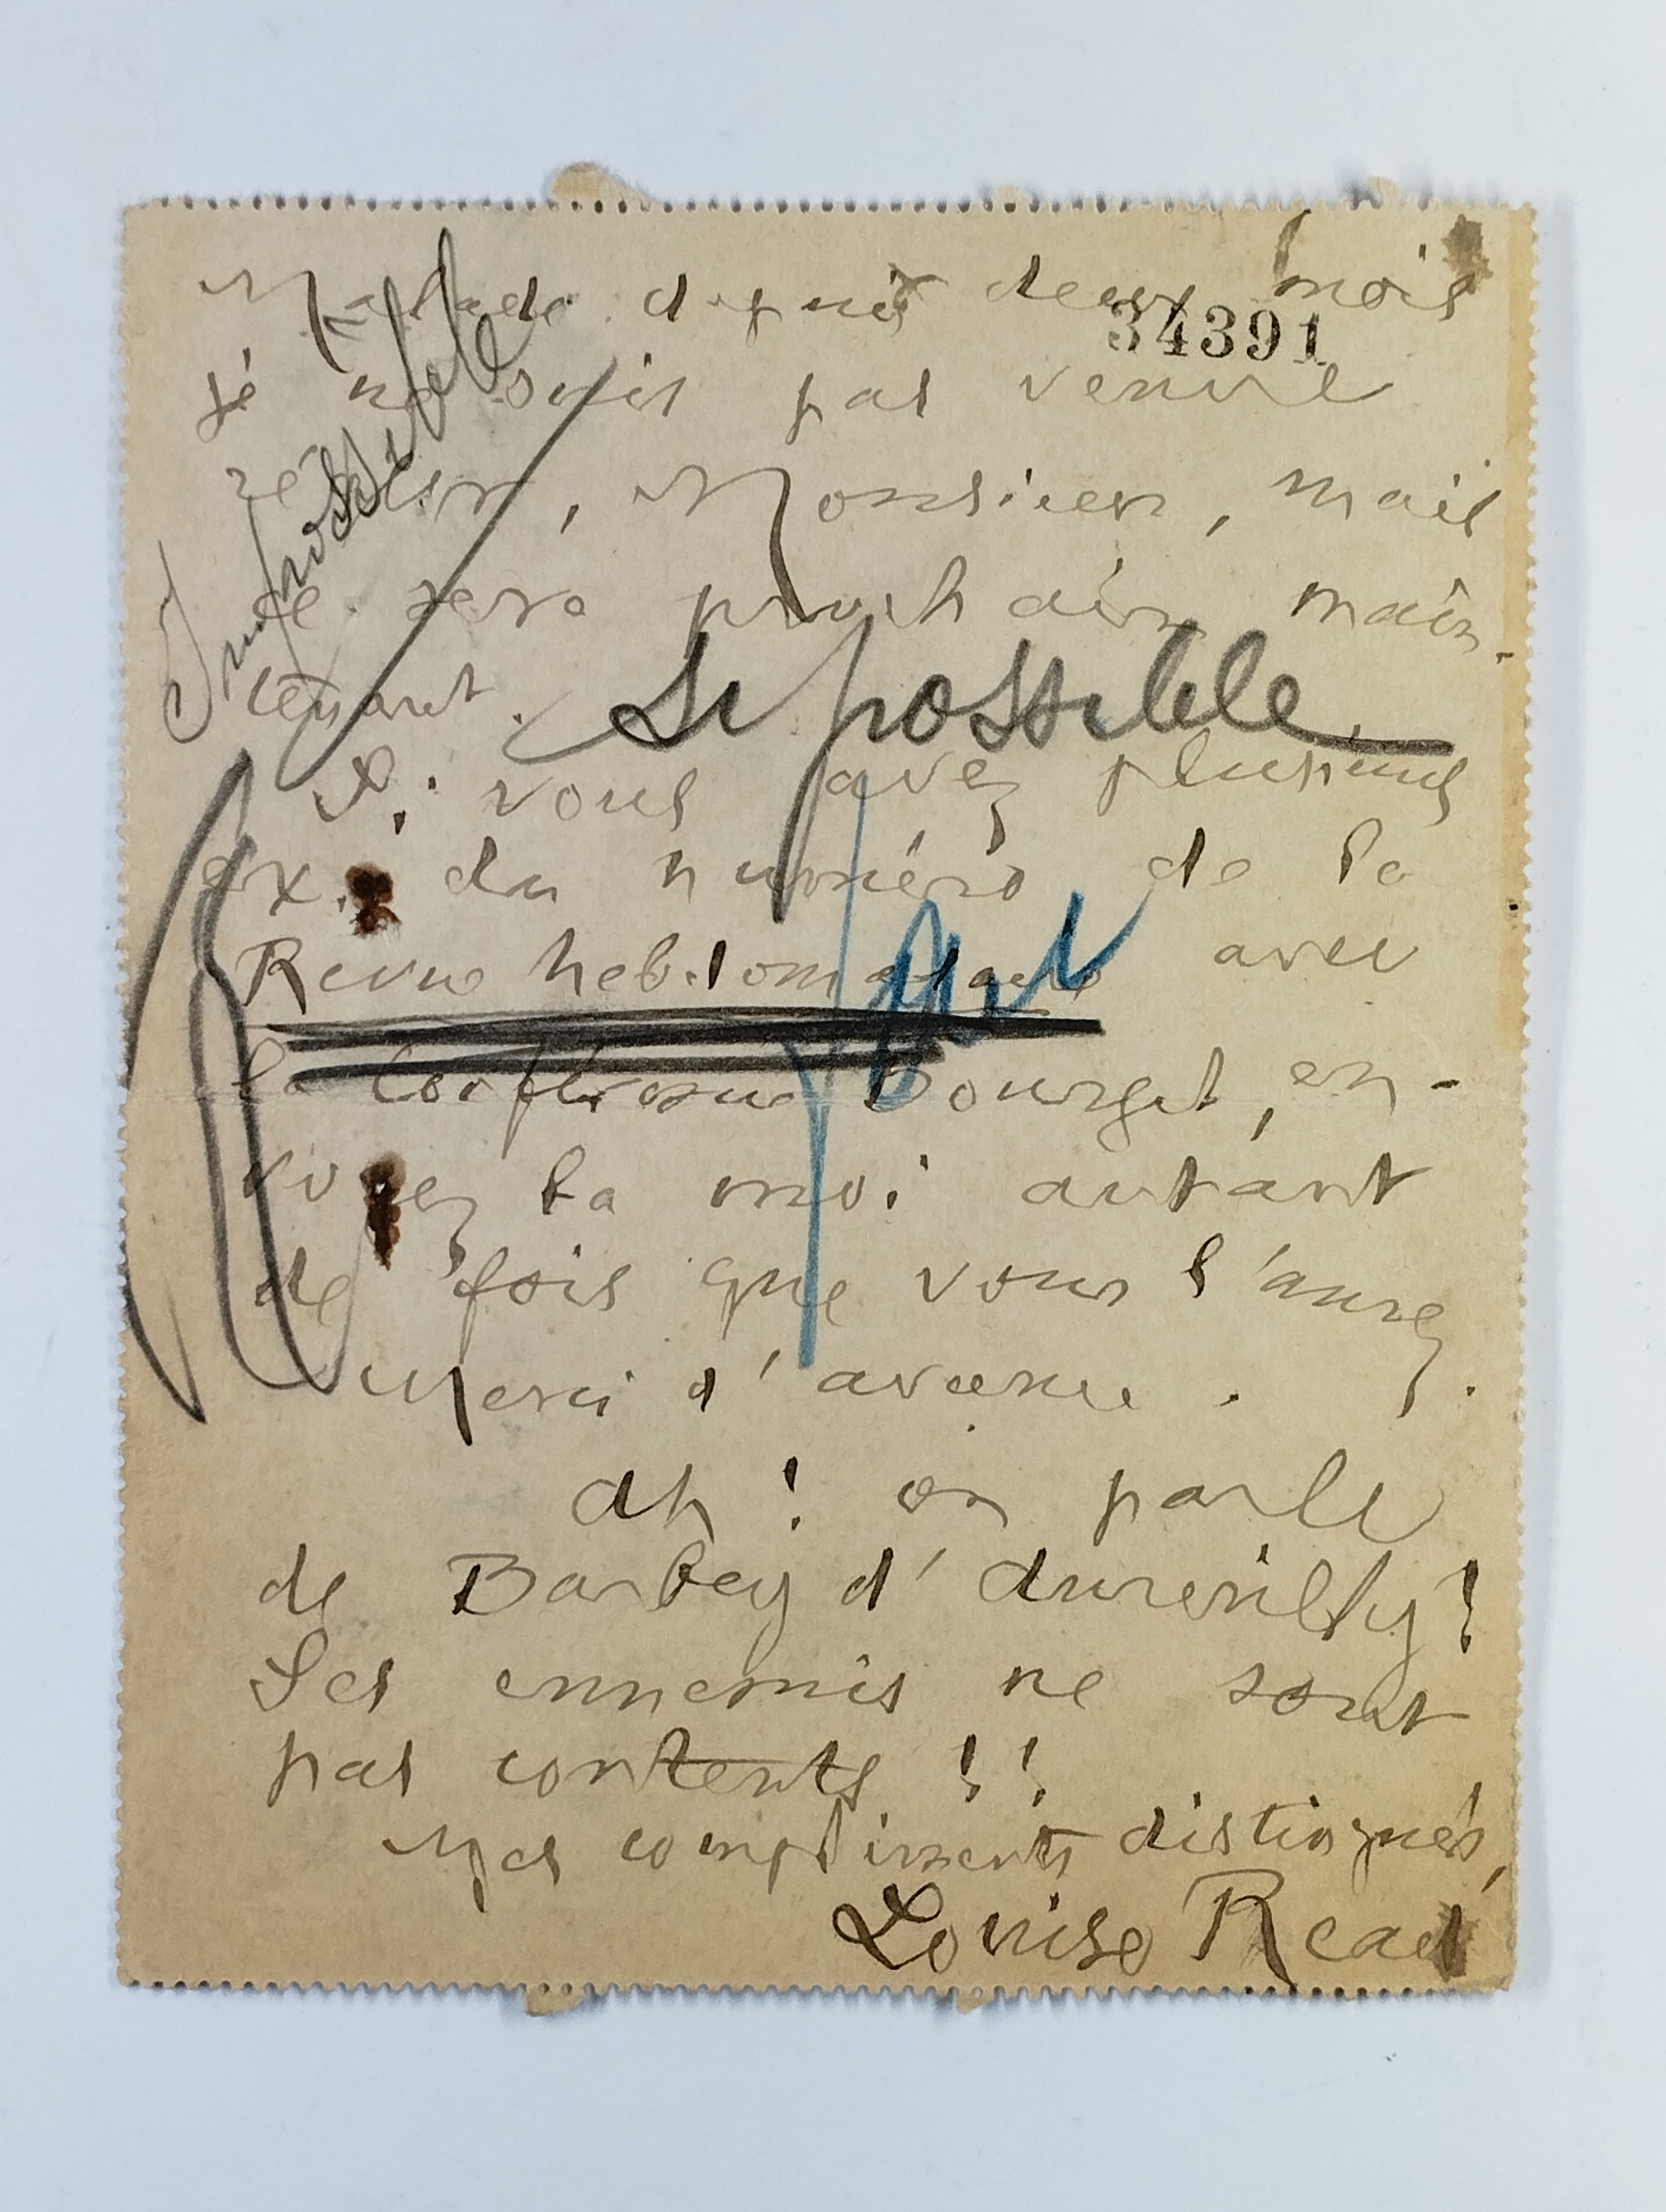 Malade depuis deux mois
34391
je ne suis pas venue
régler, Monsieur, mais
ce sera prochain main-
tenant.
Impossible
Si possible
Si vous avez plusieurs
ex. du numéro de la
Revue hebdomadaire avec
la Conférence Bourget, en-
voyez la moi autant
de fois que vous l'aurez.
Merci d'avance.
Ah! on parle
de Barbey d'Aurevilly!
Ses ennemis ne sont
pas contents!!
Mes compliments distingués,
Louise Read